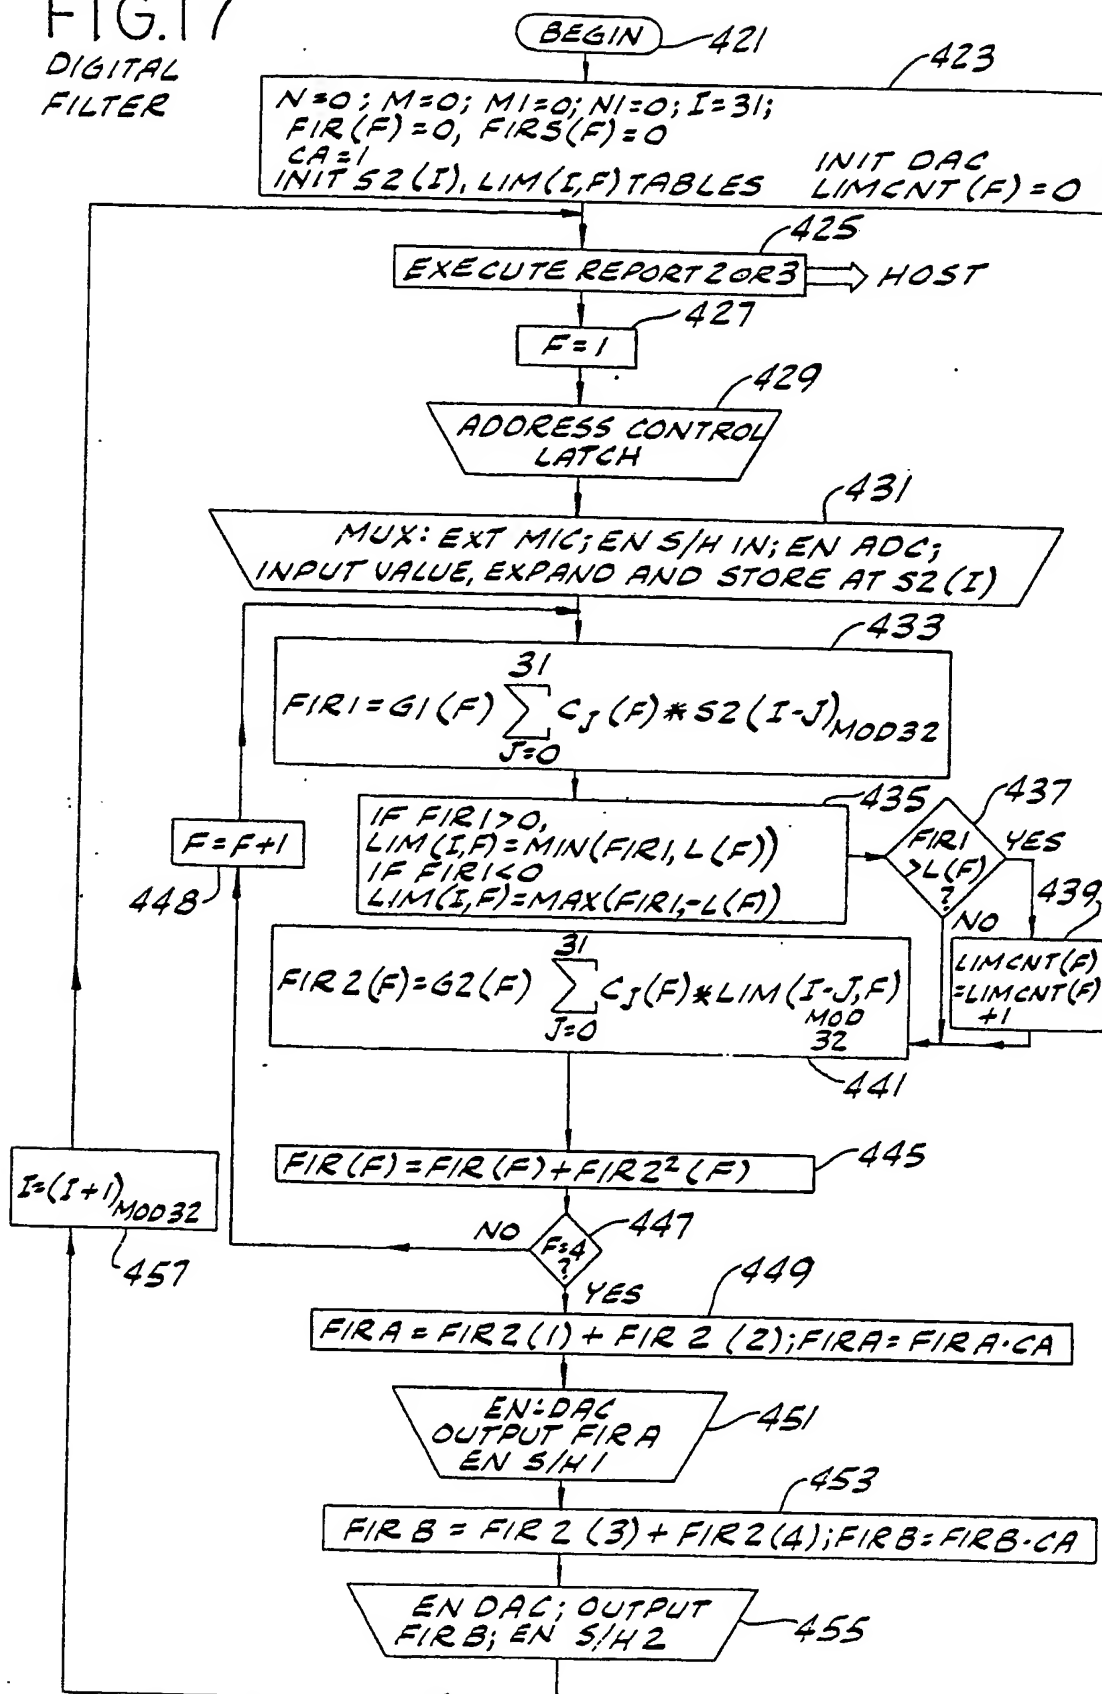 FIG.17
DIGITAL
FILTER
BEGIN
421
423
N=0; M=0; M1=0; N1=0; I=31;
FIR(F)=0, FIRS(F)=0
CA=1
INIT S2(I), LIM(I,F) TABLES
INIT DAC
LIMCNT(F)=0
425
EXECUTE REPORT 2 OR 3
HOST
427
F=1
429
ADDRESS CONTROL
LATCH
431
MUX: EXT MIC; EN S/H IN; EN ADC;
INPUT VALUE, EXPAND AND STORE AT S2(I)
433
FIR1=G1(F) 31 ∑ J=0 CJ(F)*S2(I-J)MOD32
435
IF FIR1>0,
LIM(I,F)=MIN(FIR1,L(F))
IF FIR1<0
LIM(I,F)=MAX(FIR1,-L(F))
437
FIR1
>L(F)
?
YES
NO
439
LIMCNT(F)
=LIMCNT(F)
+1
F=F+1
448
FIR2(F)=G2(F) 31 ∑ J=0 CJ(F)*LIM(I-J,F)
MOD
32
441
FIR(F)=FIR(F)+FIR2²(F)
445
I=(I+1)MOD32
457
NO
F=4
?
447
YES
449
FIRA=FIR2(1)+FIR2(2);FIRA=FIRA·CA
EN:DAC
OUTPUT FIRA
EN S/H1
451
453
FIRB=FIR2(3)+FIR2(4);FIRB=FIRB·CA
EN DAC; OUTPUT
FIRB; EN S/H2
455